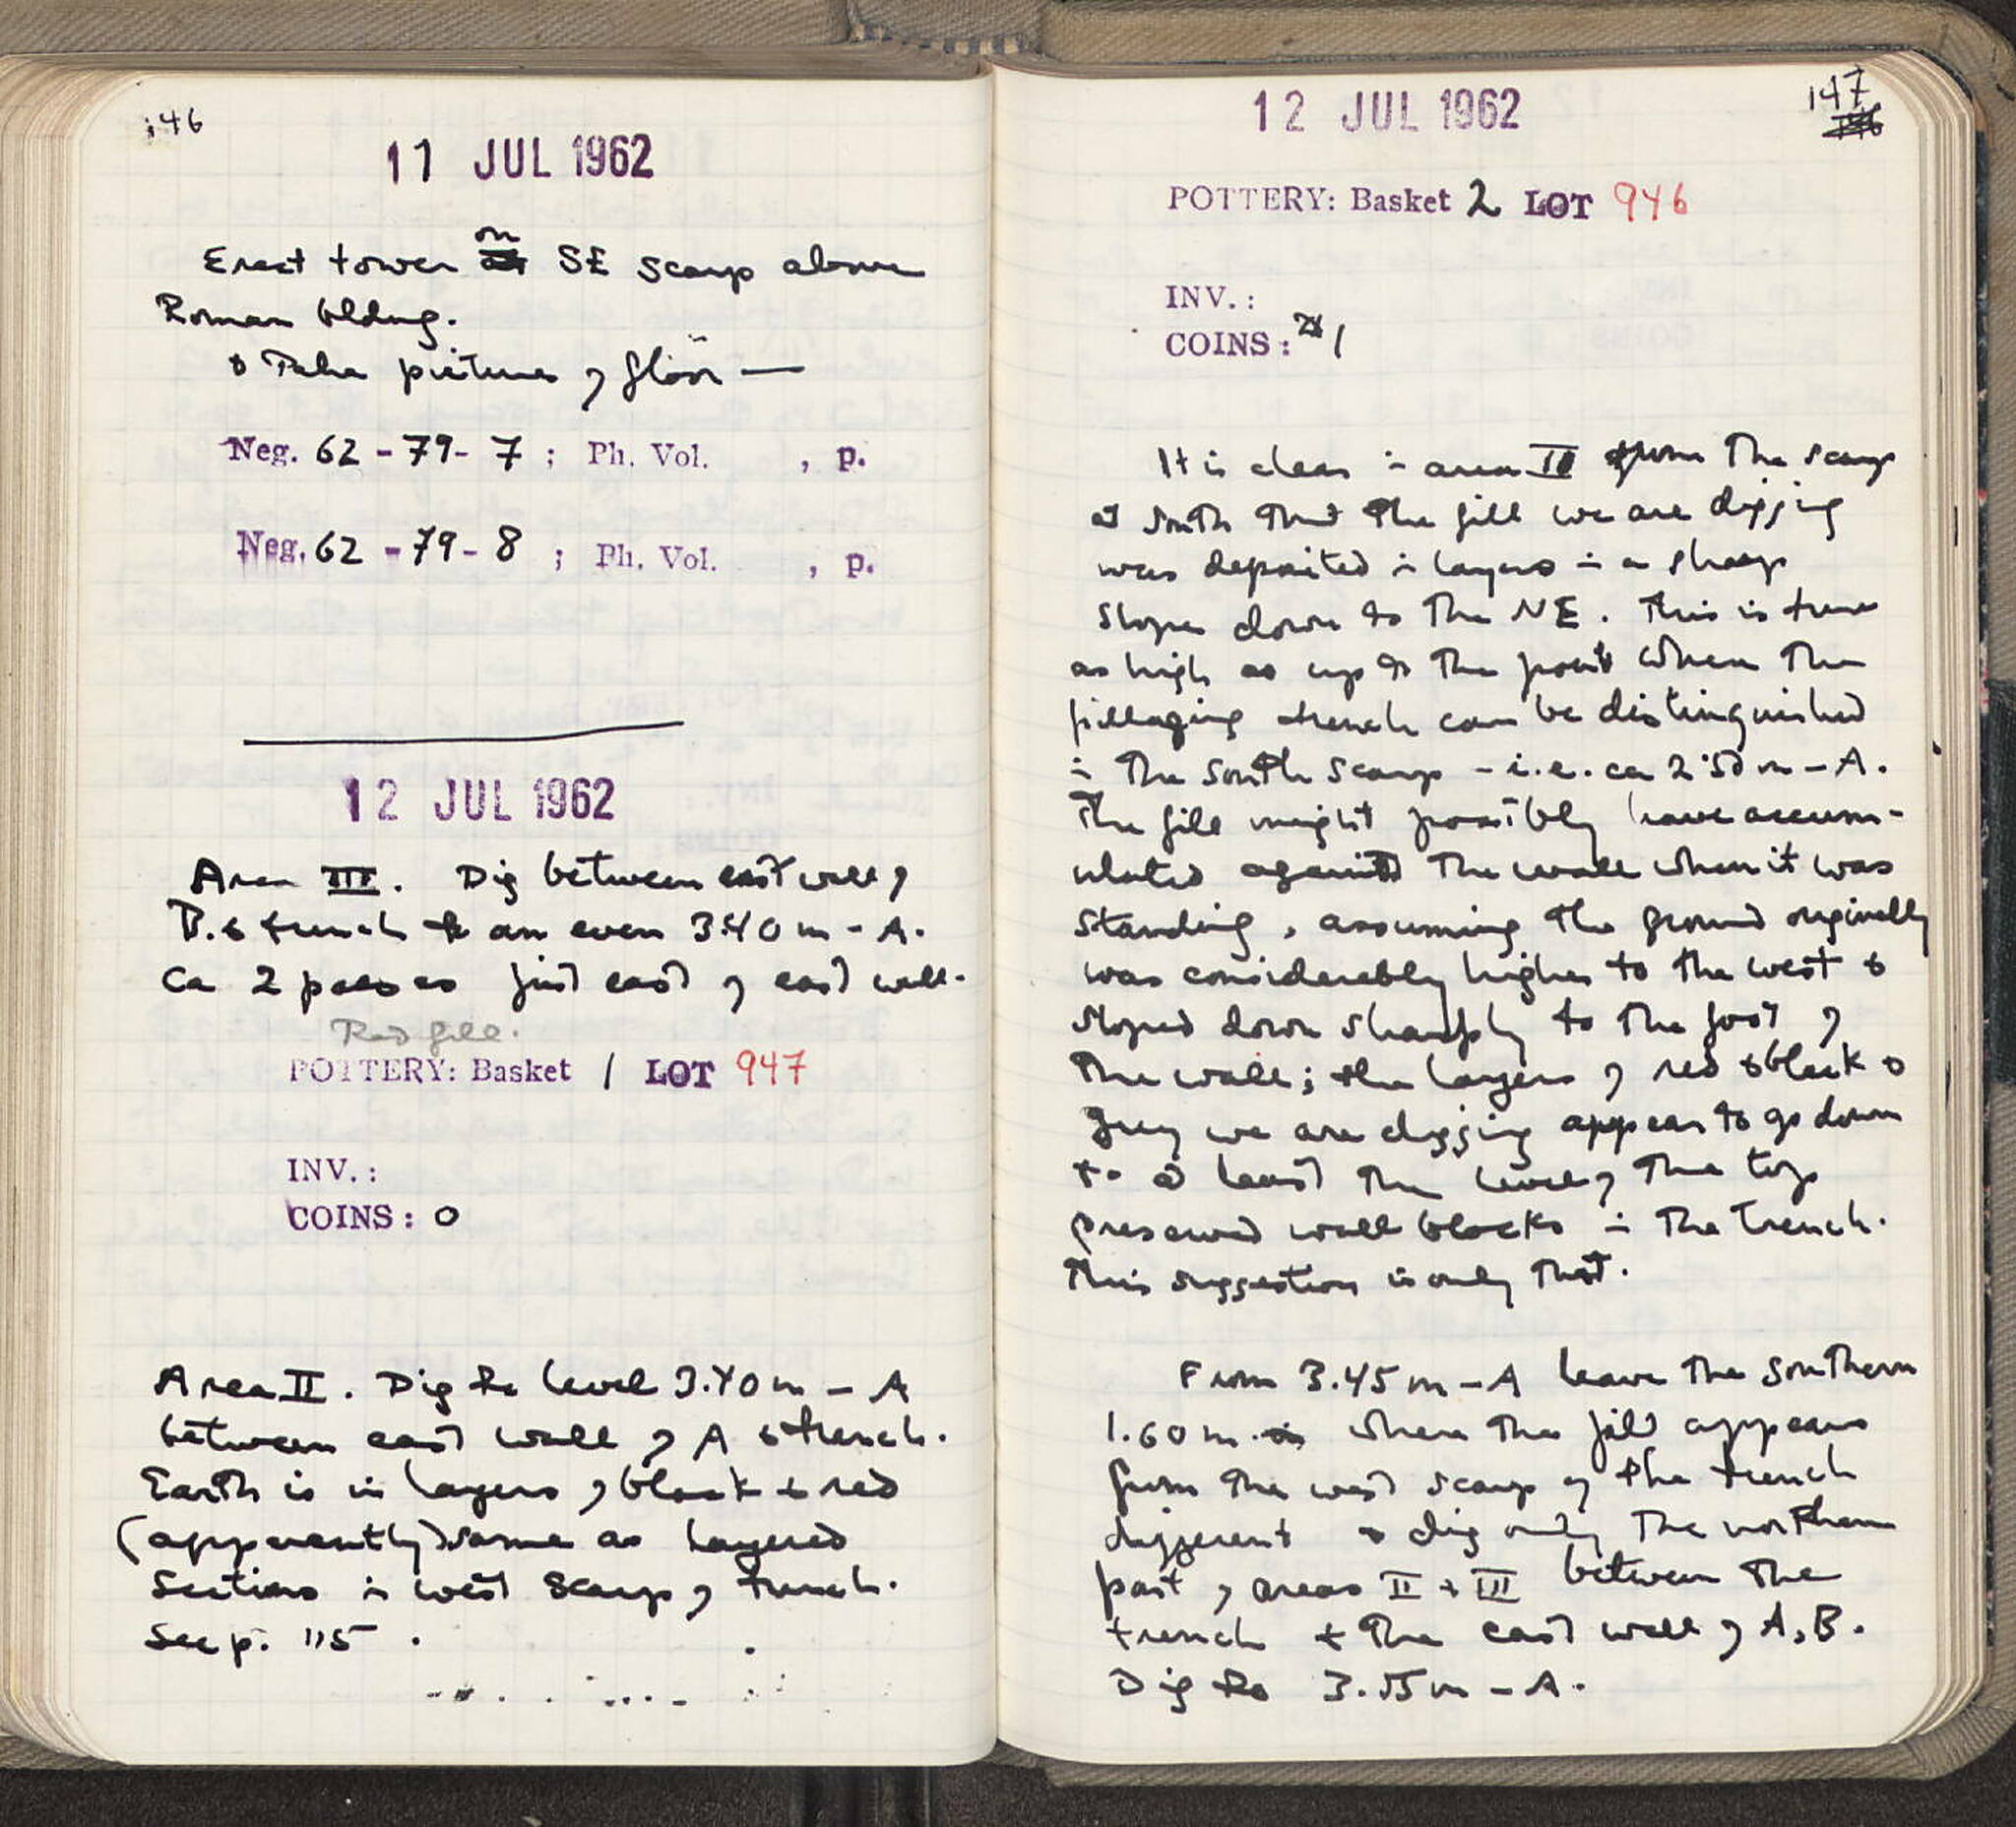 146
11 JUL 1962
Erect tower on SE scarp above
Roman bldng.
& Take picture of floor —
Neg. 62 - 79 - 7 ; Ph. Vol. , p.
Neg. 62 - 79 - 8 ; Ph. Vol. , p.
12 JUL 1962
Area III. Dig between east wall of
B. & trench to an even 3.40 m - A.
Ca 2 passes just east of east wall.
Red fill.
POTTERY: Basket 1 LOT 947
INV. :
COINS : 0
Area II. Dig to level 3.40 m - A
between east wall of A & trench.
Earth is in layers of black & red
(apparently) same as layered
sections in west scarp of trench.
See p. 115.
147
12 JUL 1962
POTTERY: Basket 2 LOT 946
INV. :
COINS : 1
It is clear in area II from the scarp
at south that the fill we are digging
was deposited in layers in a sharp
slope down to the NE. This is true
as high as up to the point where the
pillaging trench can be distinguished
in the south scarp - i.e. ca 2.50 m - A.
The fill might possibly have accum-
ulated against the wall when it was
standing, assuming the ground originally
was considerably higher to the west &
sloped down sharply to the foot of
the wall; the layers of red & black &
grey we are digging appear to go down
to at least the level of the top
preserved wall blocks in the trench.
This suggestion is only that.
From 3.45 m - A leave the southern
1.60 m. where the fill appears
from the west scarp of the trench
different & dig only the northern
part of areas II & III between the
trench & the east wall of A, B.
Dig to 3.55 m - A.